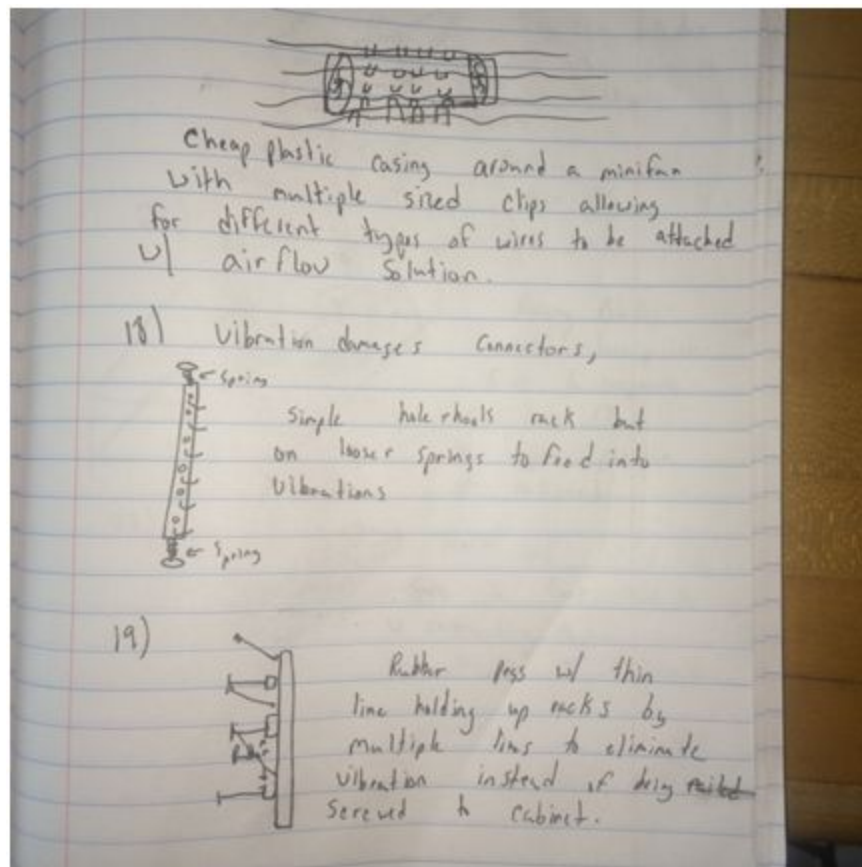 Cheap plastic casing around a minifan
with multiple sized clips allowing
for different types of wires to be attached
w/ airflow solution.
18) Vibration damages connectors,
← Spring
Simple rack but
on looser springs to feed into
vibrations
← Spring
19)
Rubber pegs w/ thin
line holding up racks by
multiple lines to eliminate
vibration instead of being
screwed to cabinet.